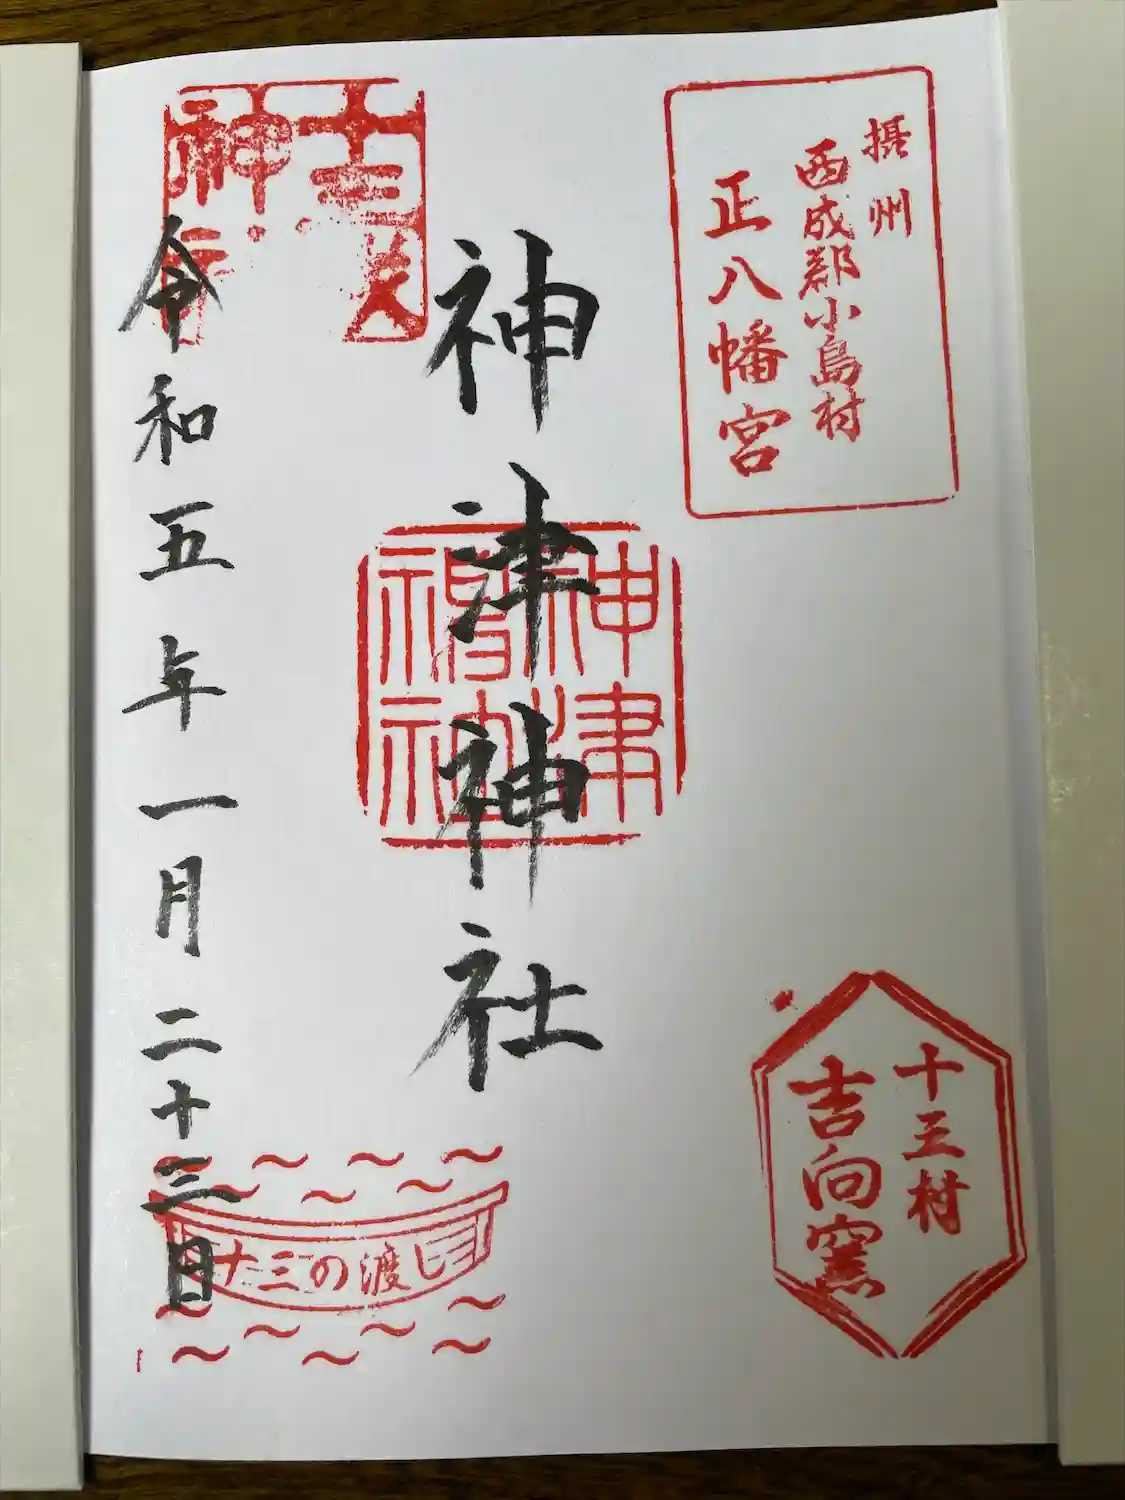 摂州
西成郡小島村
正八幡宮
十三村
吉向窯
神津神社
神津
神社
令和五年一月二十三日
十三の渡し